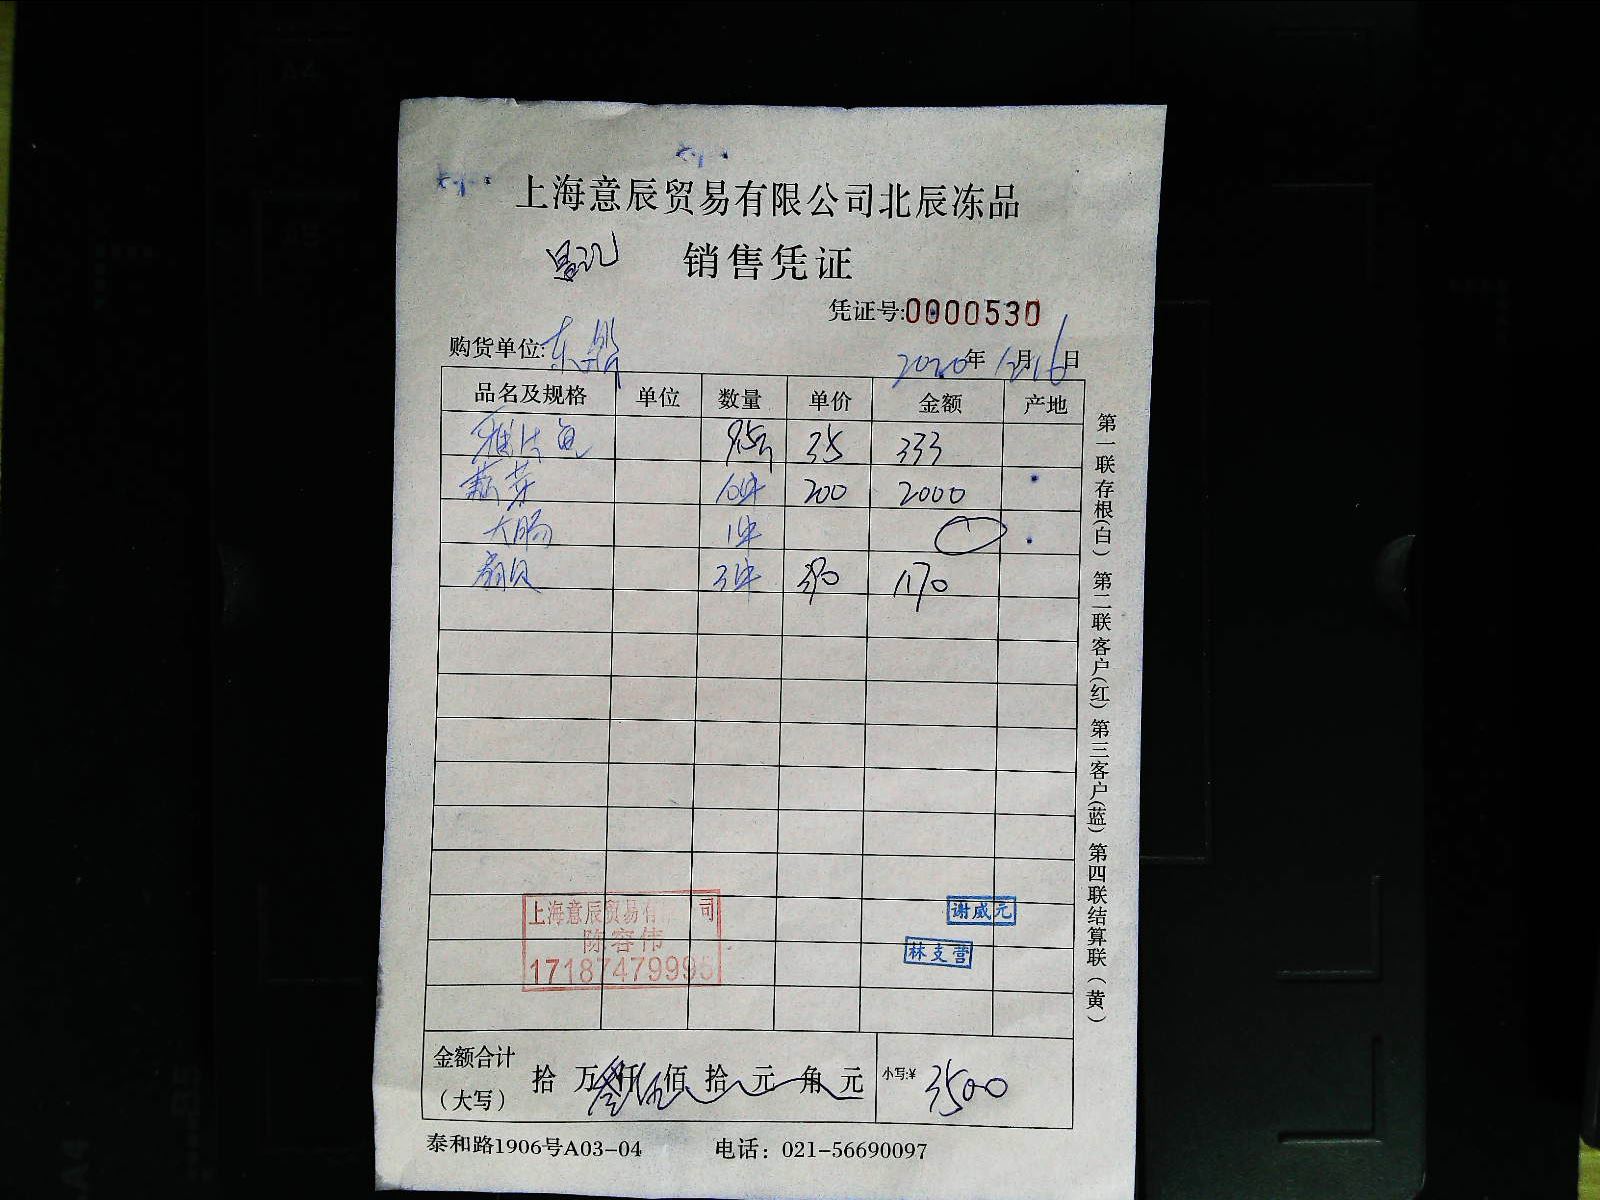 上海意辰贸易有限公司北辰冻品
销售凭证
凭证号:0000530
购货单位:东鼎 2020年12月16日
品名及规格 单位 数量 单价 金额 产地
雅片鱼 9.5斤 35 333
藕芽 10件 200 2000
大肠 1件
扇贝 3件 390 1170
上海意辰贸易有 司
陈容伟
17187479995
谢威元
林支营
金额合计(大写) 拾 万叁仟伍佰 拾 元 角 元 小写:¥ 3500
泰和路1906号A03-04 电话：021-56690097
第一联存根(白) 第二联客户(红) 第三客户(蓝) 第四联结算联(黄)